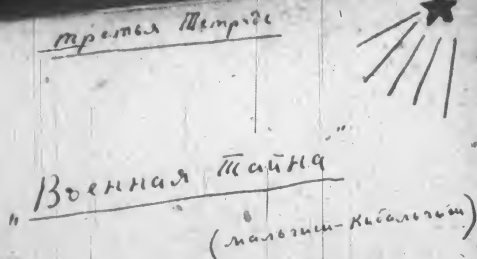 третья Тетрадь
"Военная Тайна"
(мальчиш-Кибальчиш)